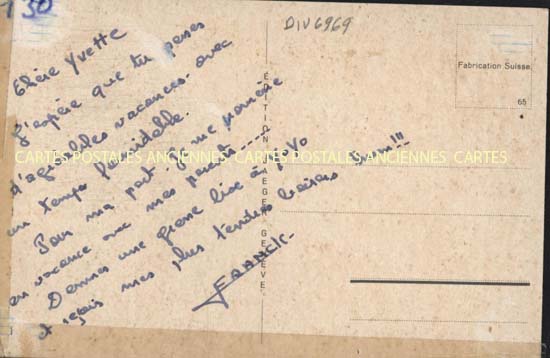 30
DIV6969
Chère Yvette
J'espère que tu passes
d'agréables vacances avec
un temps formidable.
Pour ma part je me promène
en vacance avec mes parents----
Donnes une grosse bise à JoJo
et reçois mes plus tendres baisers Miam!!!
FRANCK-
Fabrication Suisse
65
CARTES POSTALES ANCIENNES CARTES POSTALES ANCIENNES CARTES